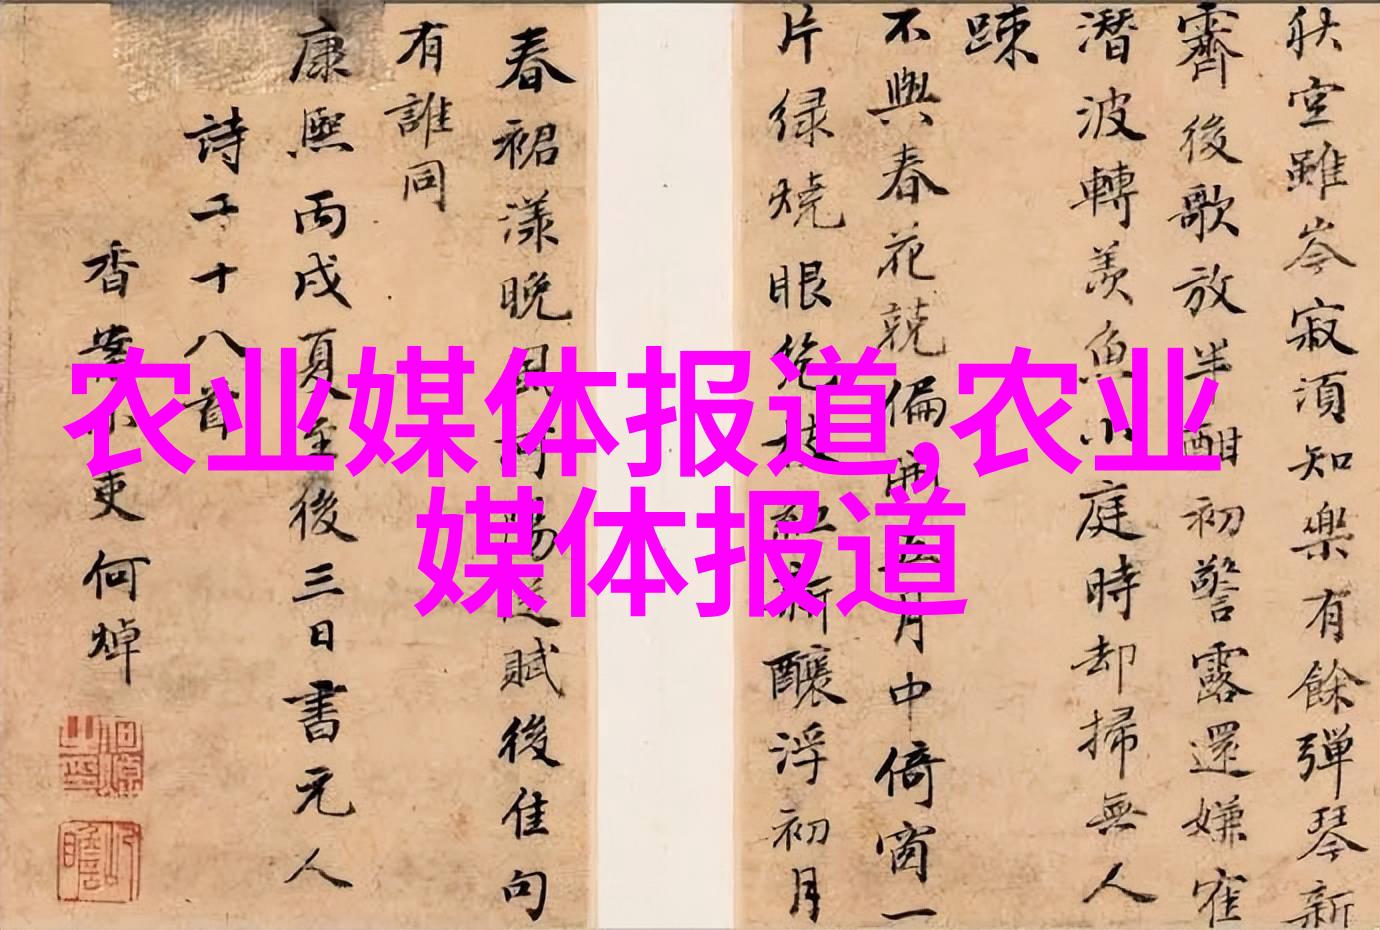 秋空雖岑寂須知樂有餘彈琴新
霽後歌放半酣初警露還嫌雀
潛波轉羨魚小庭時却掃無人
踈
不與春花競偏開五月中倚窗一
片緑燒眼絶枝紅新釀浮初月
春裙漾晚風
賦後隹句
有誰同
康熙丙戌夏至後三日書元人
詩二十八首
香案小吏何焯
农业媒体报道,农业
媒体报道